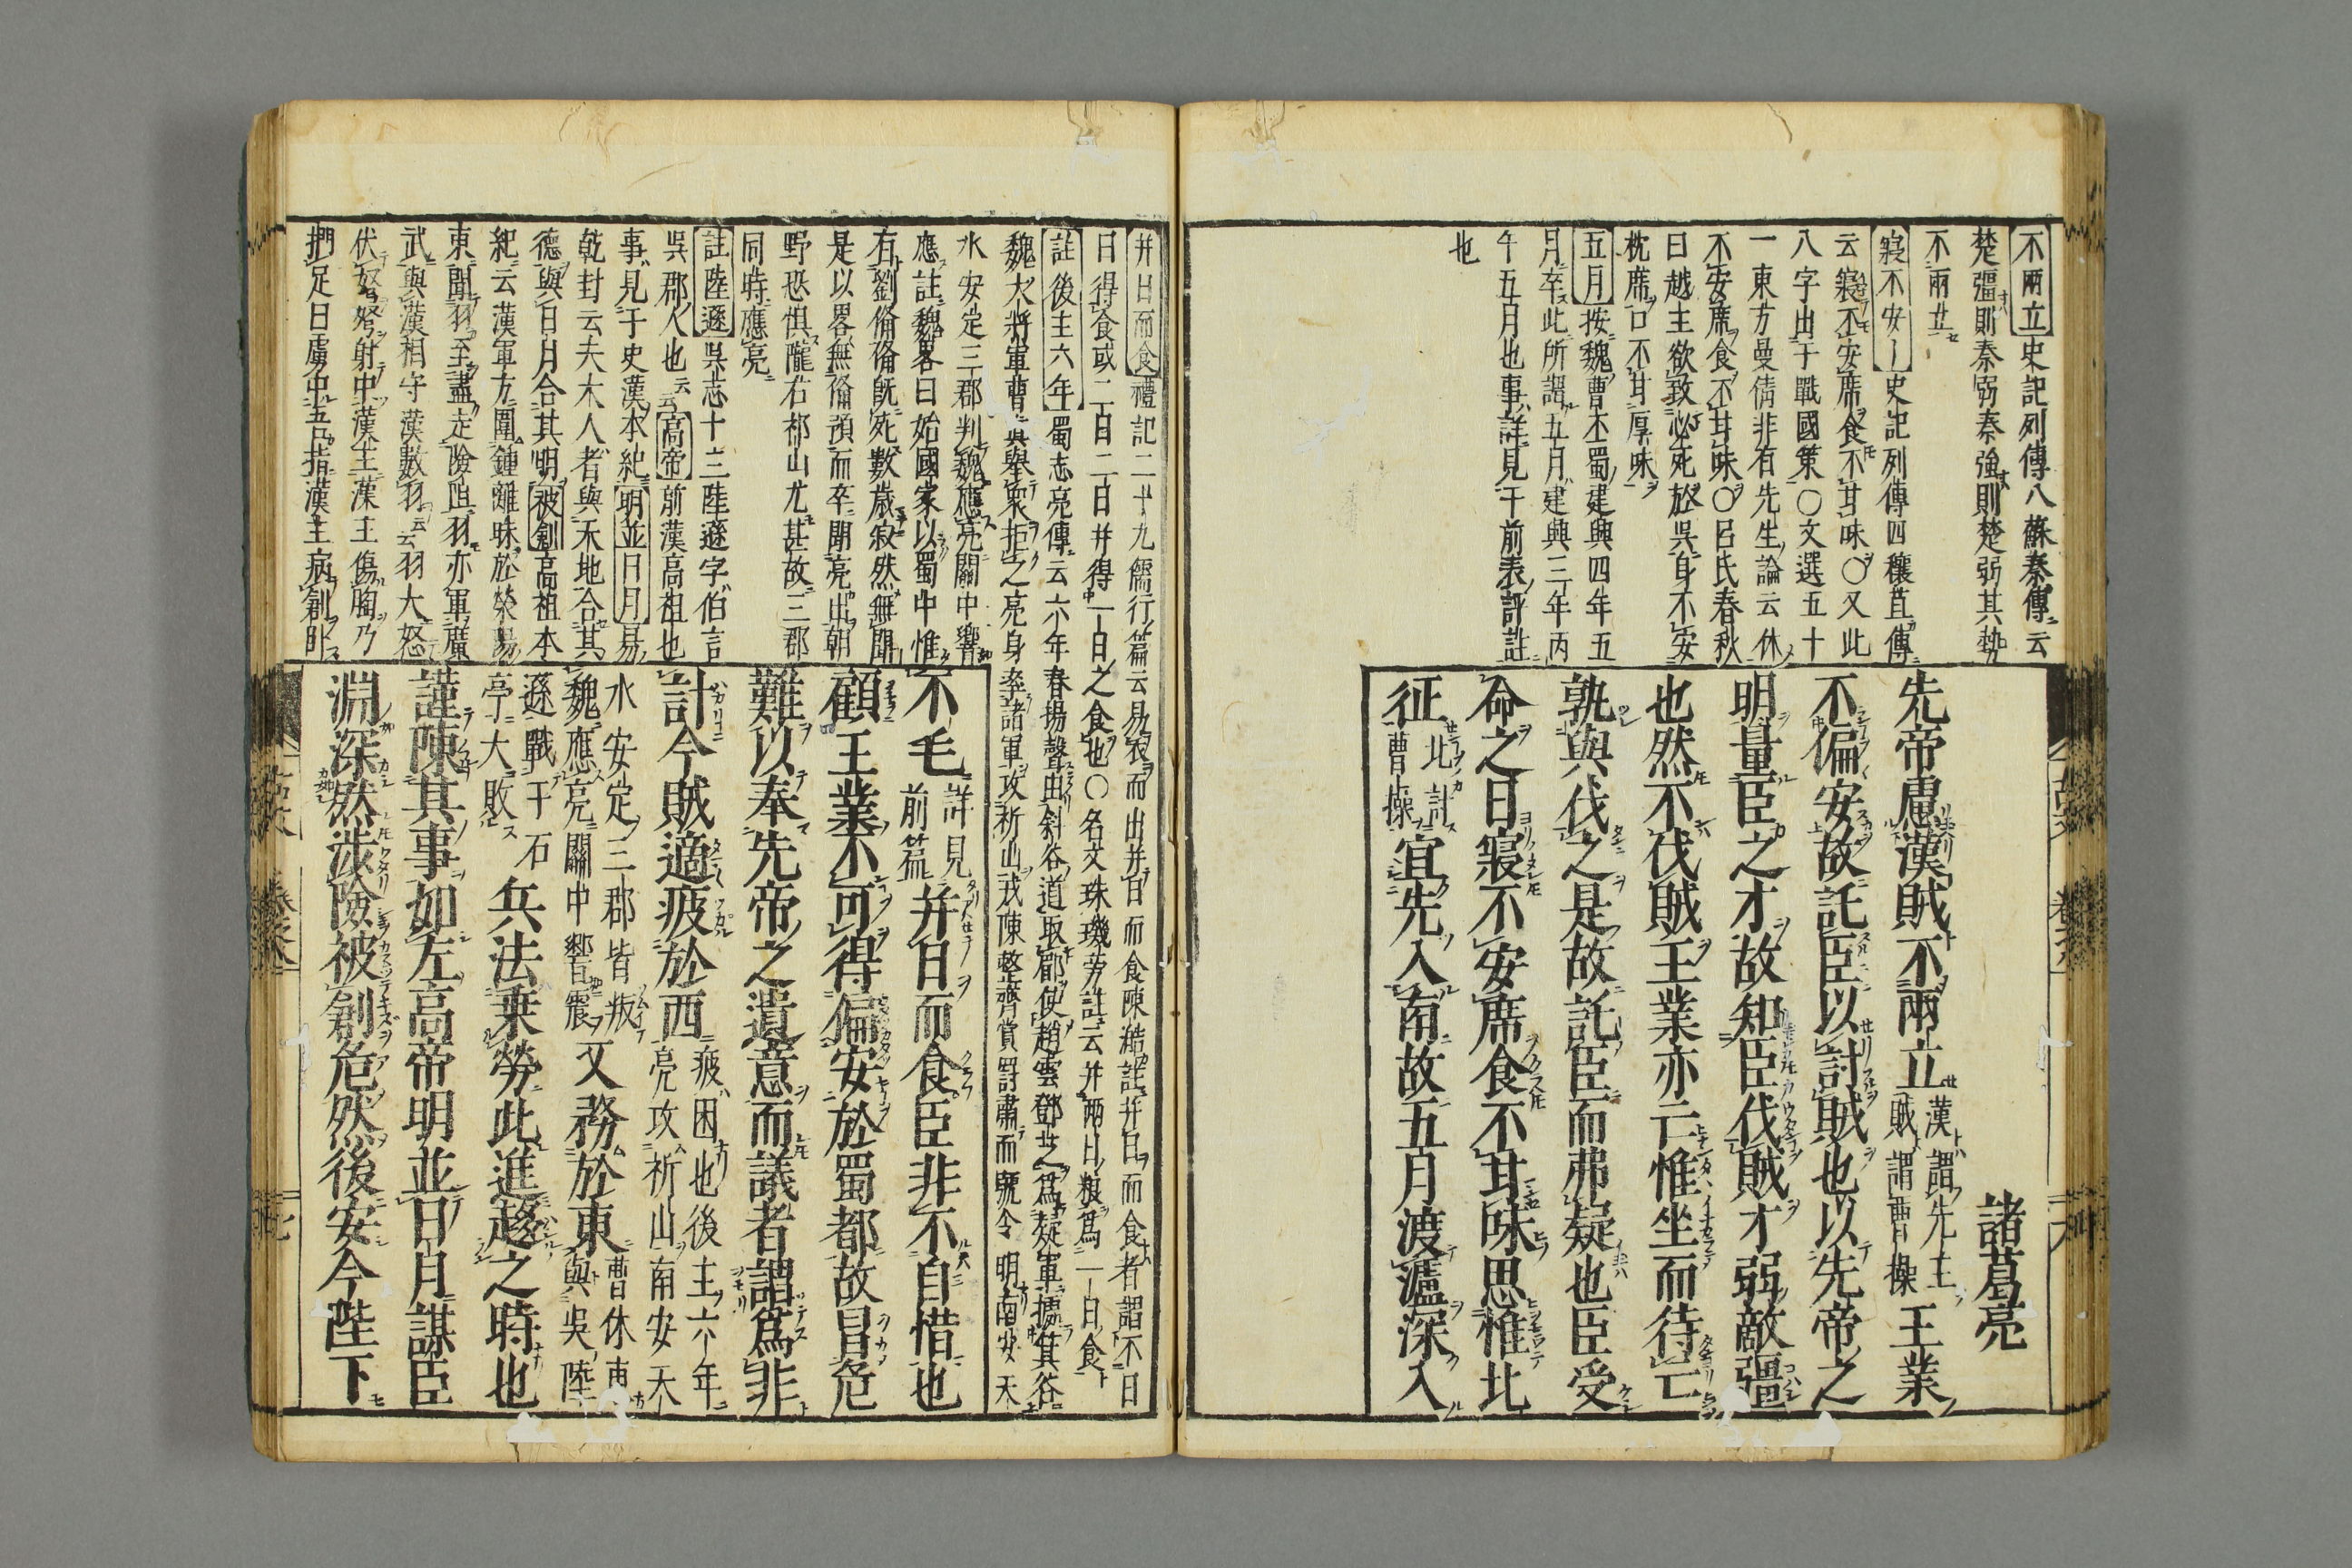 不兩立史記列傳八蘇秦傳云
楚彊則秦弱秦強則楚弱其勢
不兩立
寢不安〡史記列傳四穰苴傳
云寢不安席食不甘味〇又此
八字出于戰國策〇文選五十
一東方曼倩非有先生論云休
不安席食不甘味〇呂氏春秋
曰越主欲致必死於吳身不安
枕席口不甘厚味
五月按魏曹丕蜀建興四年五
月卒此所謂五月建興三年丙
午五月也事詳見于前表評註
也
諸葛亮
先帝慮漢賊不兩立漢謂先主賊謂曹操王業
不偏安故託臣以討賊也以先帝之
明量臣之才故知臣伐賊才弱敵彊
也然不伐賊王業亦亡惟坐而待亡
孰與伐之是故託臣而弗疑也臣受
命之日寢不安席食不甘味思惟北
征北計曹操宜先入南故五月渡瀘深入
并日而食禮記二十九儒行篇云易衣而出并日而食陳澔註并日而食者謂不日
日得食或二日三日并得一日之食也〇名文珠璣旁註云并兩日粮為一日食
註後主六年蜀志亮傳云六年春揚聲由斜谷道取郿使趙雲鄧芝為疑軍據箕谷
魏大將軍曹真舉衆拒之亮身率諸軍攻祈山戎陳整齊賞罰肅而號令明南安天
水安定三郡判魏應亮關中響
應註魏畧曰始國家以蜀中惟
有劉備備既死數歲寂然無聞
是以畧無備預而卒聞亮出朝
野恐惧隴右祁山尤甚故三郡
同時應亮
註陸遜吳志十三陸遜字伯言
吳郡人也云云高帝前漢高祖也
事見于史漢本紀明並日月易
乾封云夫大人者與天地合其
德與日月合其明被創高祖本
紀云漢軍方圍鍾離昧於滎陽
東聞羽至盡走險阻羽亦軍廣
武與漢相守漢數羽云云羽大怒
伏弩射中漢王漢王傷胸乃
捫足曰虜中吾指漢王病創臥
不毛詳見前篇并日而食臣非不自惜也
顧王業不可得偏安於蜀都故冒危
難以奉先帝之遺意而議者謂為非
計今賊適疲於西疲困也後主六年亮攻祈山南安天
水安定三郡皆叛魏應亮關中響震又務於東曹休東與吳陸
遜戰于石亭大敗兵法乗勞此進趨之時也
謹陳其事如左高帝明並日月謀臣
淵深然涉險被創危然後安今陛下